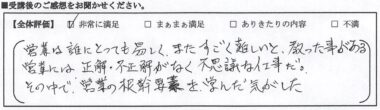 ■受講後のご感想をお聞かせください。
【全体評価】 ☑ 非常に満足 □ まぁまぁ満足 □ ありきたりの内容 □ 不満
営業は誰にとっても易しく、またすごく難しいと、教った事がある
営業には正解・不正解がなく不思議な仕事だ。
その中で、営業の根幹要素を学んだ気がした